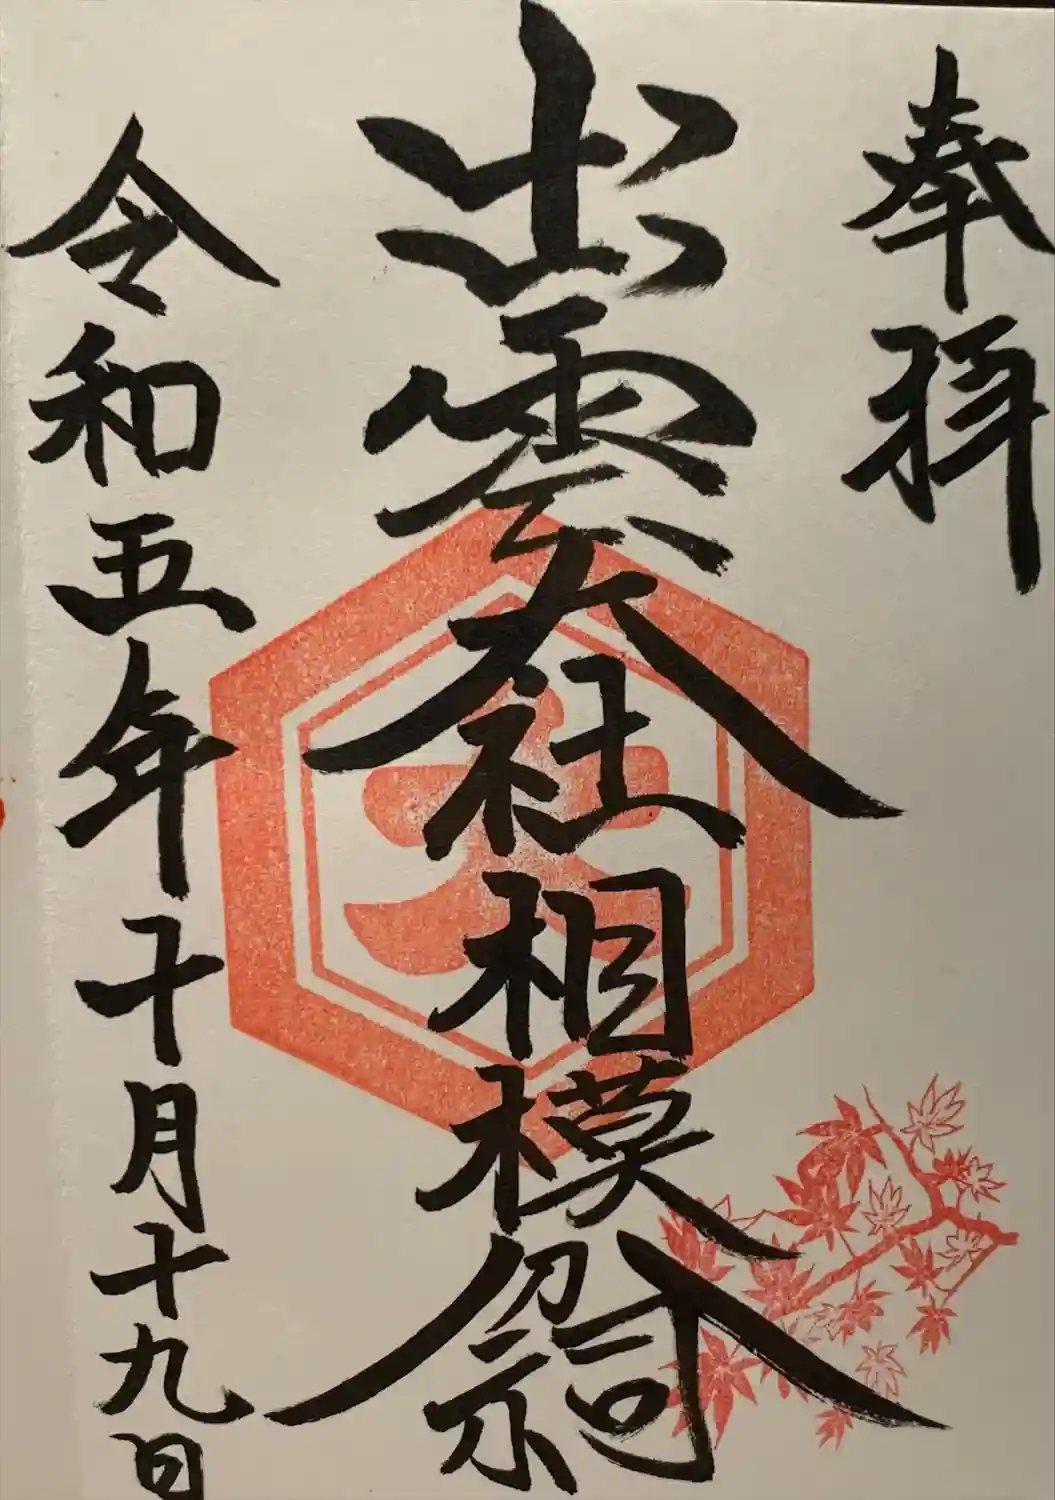 奉拝
出雲大社相模分祠
令和五年十月十九日
大